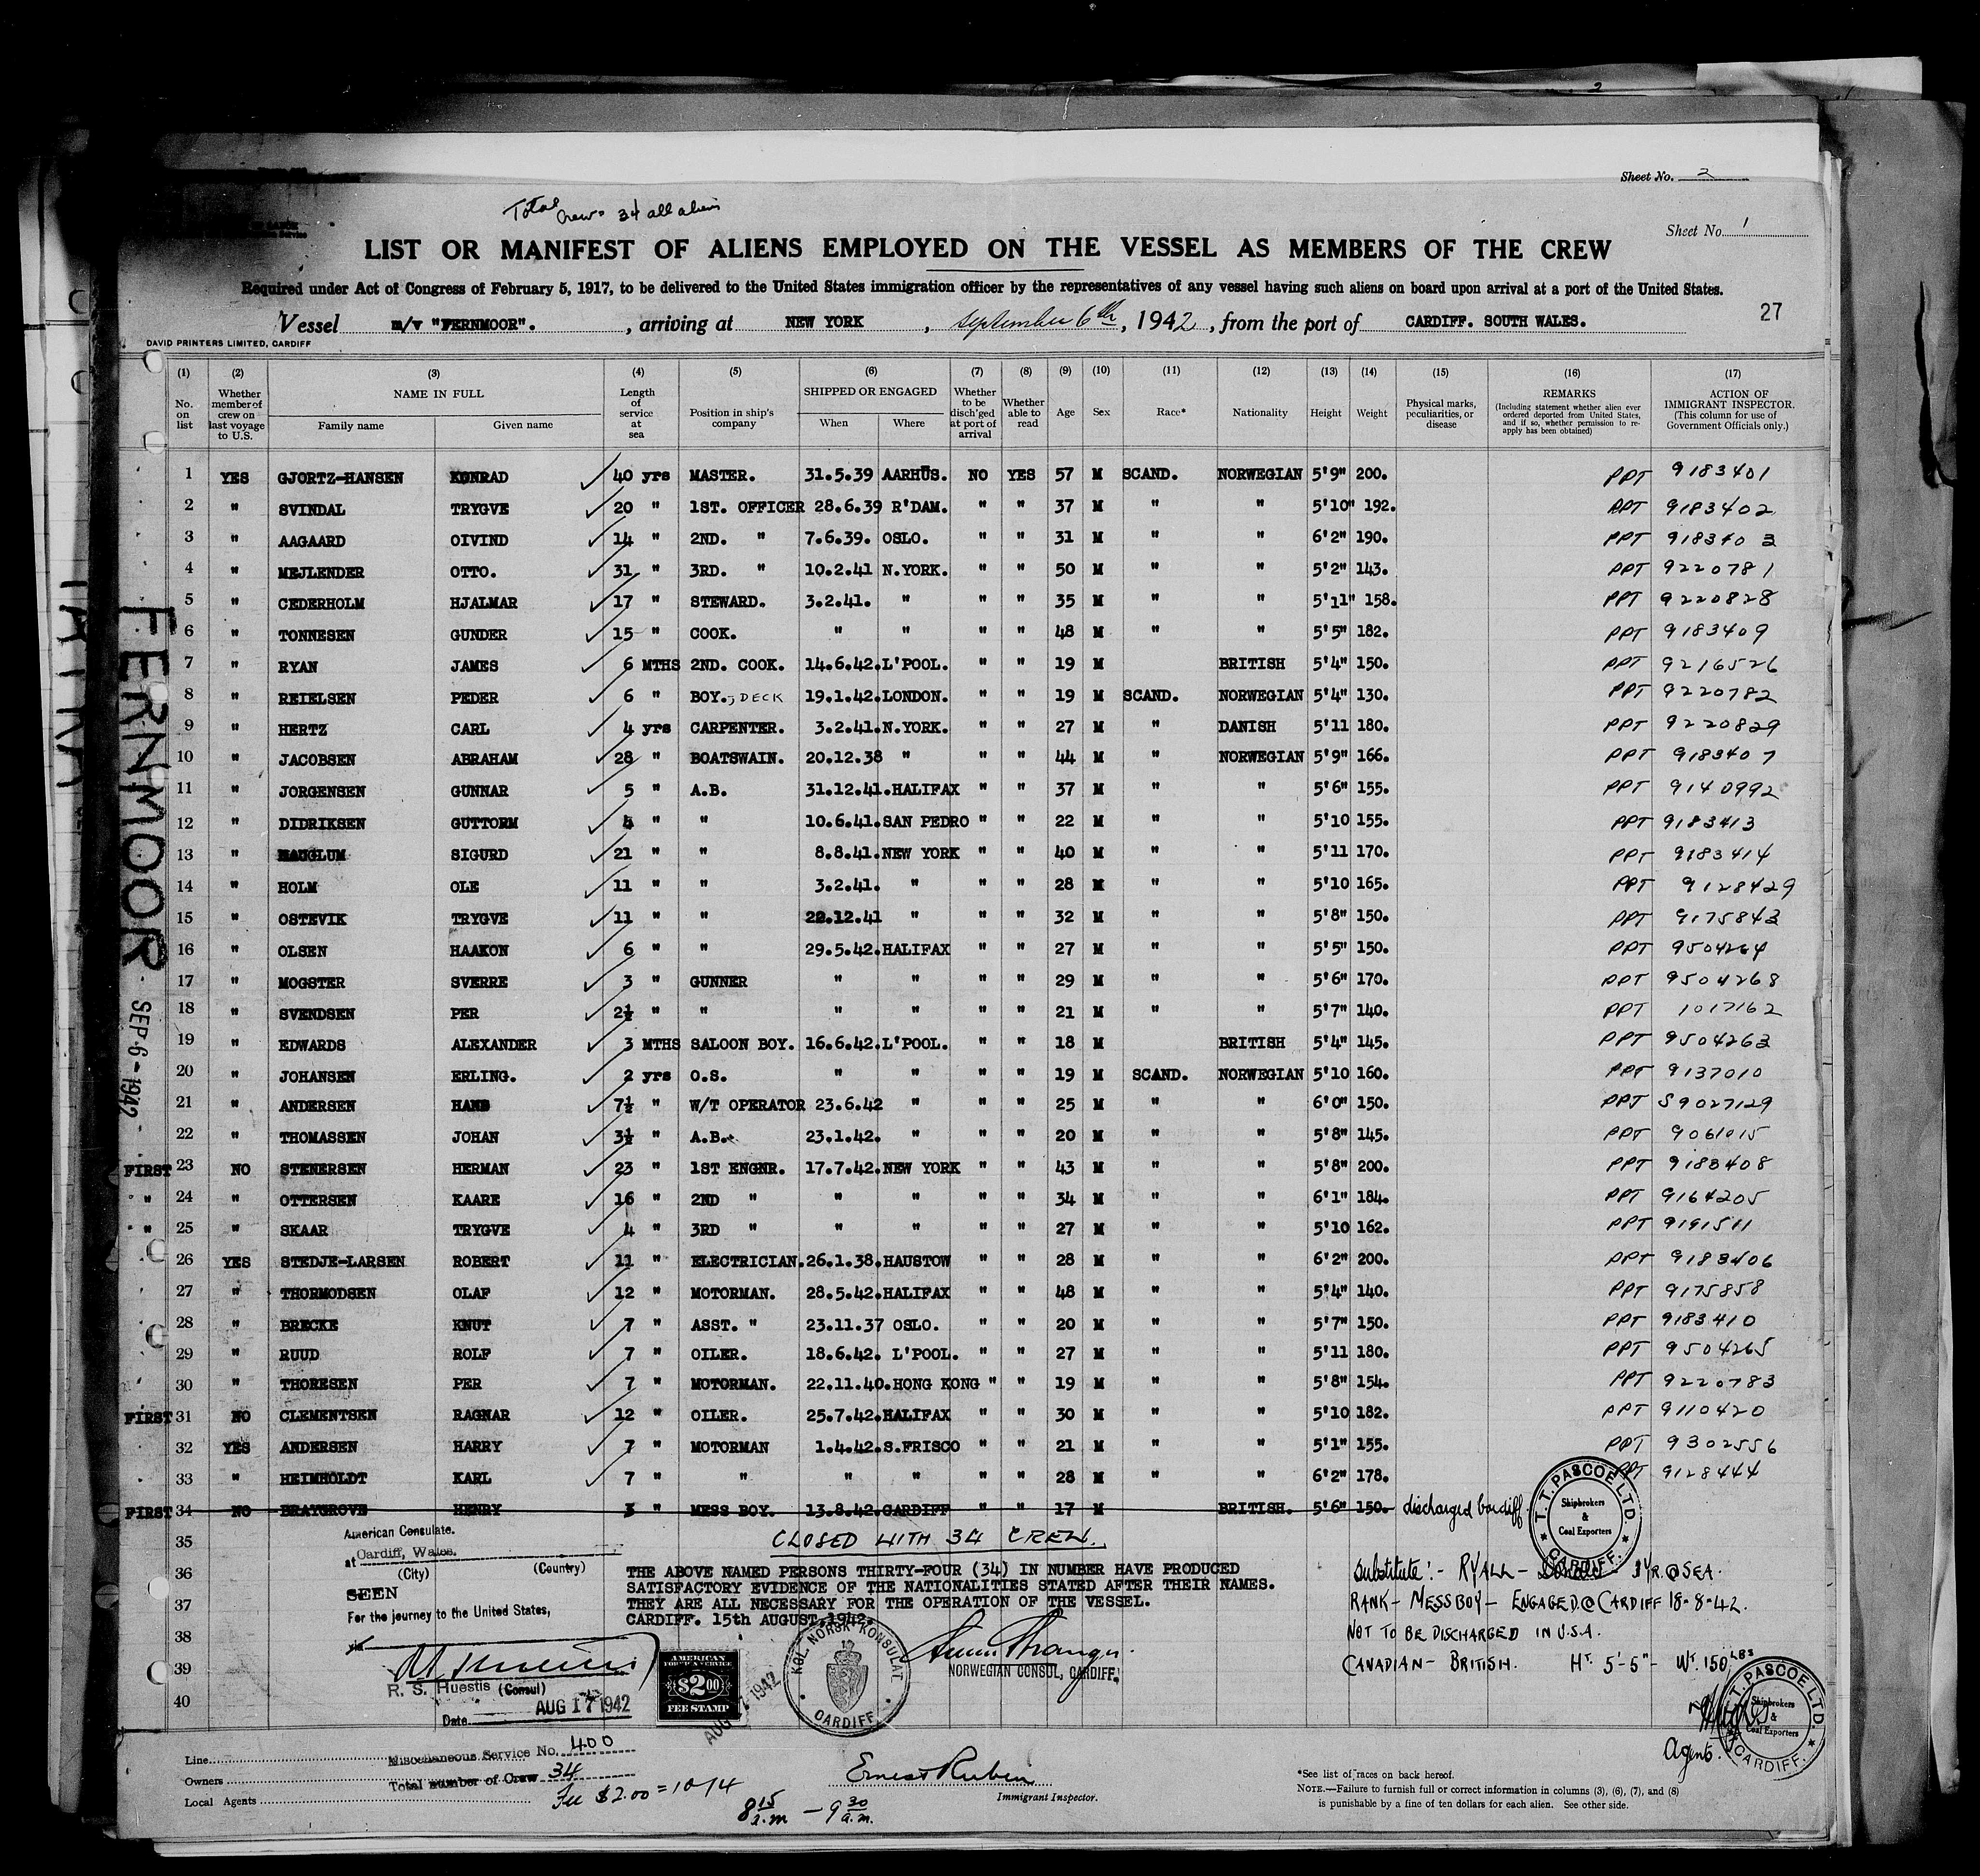 2
Sheet No. 2
Total
Crew = 34 all aliens
Sheet No. 1
LIST OR MANIFEST OF ALIENS EMPLOYED ON THE VESSEL AS MEMBERS OF THE CREW
Required under Act of Congress of February 5, 1917, to be delivered to the United States immigration officer by the representatives of any vessel having such aliens on board upon arrival at a port of the United States.
27
Vessel m/v "FERNMOOR". , arriving at NEW YORK , September 6th, 1942, from the port of CARDIFF. SOUTH WALES.
DAVID PRINTERS LIMITED, CARDIFF
(1) (2) (3) (4) (5) (6) (7) (8) (9) (10) (11) (12) (13) (14) (15) (16) (17)
No. on list Whether member of crew on last voyage to U.S. NAME IN FULL Family name Given name Length of service at sea Position in ship's company SHIPPED OR ENGAGED When Where Whether to be disch'ged at port of arrival Whether able to read Age Sex Race* Nationality Height Weight Physical marks, peculiarities, or disease REMARKS (Including statement whether alien ever ordered deported from United States, and if so, whether permission to re-apply has been obtained) ACTION OF IMMIGRANT INSPECTOR. (This column for use of Government Officials only.)
1 YES GJORTZ-HANSEN KONRAD 40 yrs MASTER. 31.5.39 AARHUS. NO YES 57 M SCAND. NORWEGIAN 5'9" 200. PPT 9183401
2 " SVINDAL TRYGVE 20 " 1ST. OFFICER 28.6.39 R'DAM. " " 37 M " " 5'10" 192. PPT 9183402
3 " AAGAARD OIVIND 14 " 2ND. " 7.6.39. OSLO. " " 31 M " " 6'2" 190. PPT 9183403
4 " MEJLENDER OTTO. 31 " 3RD. " 10.2.41 N.YORK. " " 50 M " " 5'2" 143. PPT 9220781
5 " CEDERHOLM HJALMAR 17 " STEWARD. 3.2.41. " " " 35 M " " 5'11" 158. PPT 9220828
6 " TONNESEN GUNDER 15 " COOK. " " " " 48 M " " 5'5" 182. PPT 9183409
7 " RYAN JAMES 6 MTHS 2ND. COOK. 14.6.42. L'POOL. " " 19 M BRITISH 5'4" 150. PPT 9216526
8 " REIELSEN PEDER 6 " BOY. DECK 19.1.42. LONDON. " " 19 M SCAND. NORWEGIAN 5'4" 130. PPT 9220782
9 " HERTZ CARL 4 yrs CARPENTER. 3.2.41. N.YORK. " " 27 M " DANISH 5'11 180. PPT 9220829
10 " JACOBSEN ABRAHAM 28 " BOATSWAIN. 20.12.38 " " " 44 M " NORWEGIAN 5'9" 166. PPT 9183407
11 " JORGENSEN GUNNAR 5 " A.B. 31.12.41. HALIFAX " " 37 M " " 5'6" 155. PPT 9140992
12 " DIDRIKSEN GUTTORM " " 10.6.41. SAN PEDRO " " 22 M " " 5'10 155. PPT 9183413
13 " HAUGLUM SIGURD 21 " " 8.8.41. NEW YORK " " 40 M " " 5'11 170. PPT 9183414
14 " HOLM OLE 11 " " 3.2.41. " " " 28 M " " 5'10 165. PPT 9128429
15 " OSTEVIK TRYGVE 11 " " 22.12.41 " " " 32 M " " 5'8" 150. PPT 9175843
16 " OLSEN HAAKON 6 " " 29.5.42. HALIFAX " " 27 M " " 5'5" 150. PPT 9504264
17 " MOGSTER SVERRE 3 " GUNNER " " " " 29 M " " 5'6" 170. PPT 9504268
18 " SVENDSEN PER 2½ " " " " " " 21 M " " 5'7" 140. PPT 1017162
19 " EDWARDS ALEXANDER 3 MTHS SALOON BOY. 16.6.42. L'POOL. " " 18 M BRITISH 5'4" 145. PPT 9504263
20 " JOHANSEN ERLING. 2 yrs O.S. " " " " 19 M SCAND. NORWEGIAN 5'10 160. PPT 9137010
21 " ANDERSEN HANS 7½ " W/T OPERATOR 23.6.42 " " " 25 M " " 6'0" 150. PPT S9027129
22 " THOMASSEN JOHAN 3½ " A.B. 23.1.42. " " " 20 M " " 5'8" 145. PPT 9061015
FIRST 23 NO STENERSEN HERMAN 23 " 1ST ENGNR. 17.7.42. NEW YORK " " 43 M " " 5'8" 200. PPT 9183408
" 24 " OTTERSEN KAARE 16 " 2ND " " " " " 34 M " " 6'1" 184. PPT 9164205
" 25 " SKAAR TRYGVE 4 " 3RD " " " " " 27 M " " 5'10 162. PPT 9191511
26 YES STEDJE-LARSEN ROBERT 11 " ELECTRICIAN. 26.1.38. HAUSTOW " " 28 M " " 6'2" 200. PPT 9183406
27 " THORMODSEN OLAF 12 " MOTORMAN. 28.5.42. HALIFAX " " 48 M " " 5'4" 140. PPT 9175858
28 " BRECKE KNUT 7 " ASST. " 23.11.37 OSLO. " " 20 M " " 5'7" 150. PPT 9183410
29 " RUUD ROLF 7 " OILER. 18.6.42. L'POOL. " " 27 M " " 5'11 180. PPT 9504265
30 " THORESEN PER 7 " MOTORMAN. 22.11.40. HONG KONG " " 19 M " " 5'8" 154. PPT 9220783
FIRST 31 NO CLEMENTSEN RAGNAR 12 " OILER. 25.7.42. HALIFAX " " 30 M " " 5'10 182. PPT 9110420
32 YES ANDERSEN HARRY 7 " MOTORMAN 1.4.42. S.FRISCO " " 21 M " " 5'1" 155. PPT 9302556
33 " HEIMHOLDT KARL 7 " " " " " " 28 M " " 6'2" 178. PPT 9128444
FIRST 34 NO BRAYGROVE HENRY 3 " MESS BOY. 13.8.42. CARDIFF " " 17 M BRITISH. 5'6" 150. discharged Cardiff
T.T. PASCOE LTD. Shipbrokers & Coal Exporters CARDIFF.
American Consulate.
35 CLOSED WITH 34 CREW.
at Cardiff, Wales.
(City) (Country)
36 THE ABOVE NAMED PERSONS THIRTY-FOUR (34) IN NUMBER HAVE PRODUCED
SATISFACTORY EVIDENCE OF THE NATIONALITIES STATED AFTER THEIR NAMES.
37 THEY ARE ALL NECESSARY FOR THE OPERATION OF THE VESSEL.
CARDIFF. 15th AUGUST, 1942.
SEEN
For the journey to the United States,
via
38
39
40
R. S. Huestis (Consul)
Date AUG 17 1942
AMERICAN FOREIGN SERVICE $2.00 FEE STAMP
AUG 17 1942
KGL. NORSK KONSULAT CARDIFF
NORWEGIAN CONSUL, CARDIFF.
Substitute:- RYALL - 3 YR. @ SEA.
RANK - MESSBOY - ENGAGED @ CARDIFF 18-8-42.
NOT TO BE DISCHARGED IN U.S.A.
CANADIAN - BRITISH. HT. 5'-5" - WT. 150 LBS
T.T. PASCOE LTD. Shipbrokers & Coal Exporters CARDIFF.
Agents.
Line
Miscellaneous Service No. 400
Owners
Total number of Crew 34
Local Agents
Fee $2.00 = 10/4
8 15 a.m - 9 30 a.m.
Ernest Rubin
Immigrant Inspector.
*See list of races on back hereof.
NOTE.—Failure to furnish full or correct information in columns (3), (6), (7), and (8)
is punishable by a fine of ten dollars for each alien. See other side.
FERNMOOR
SEP-6-1942